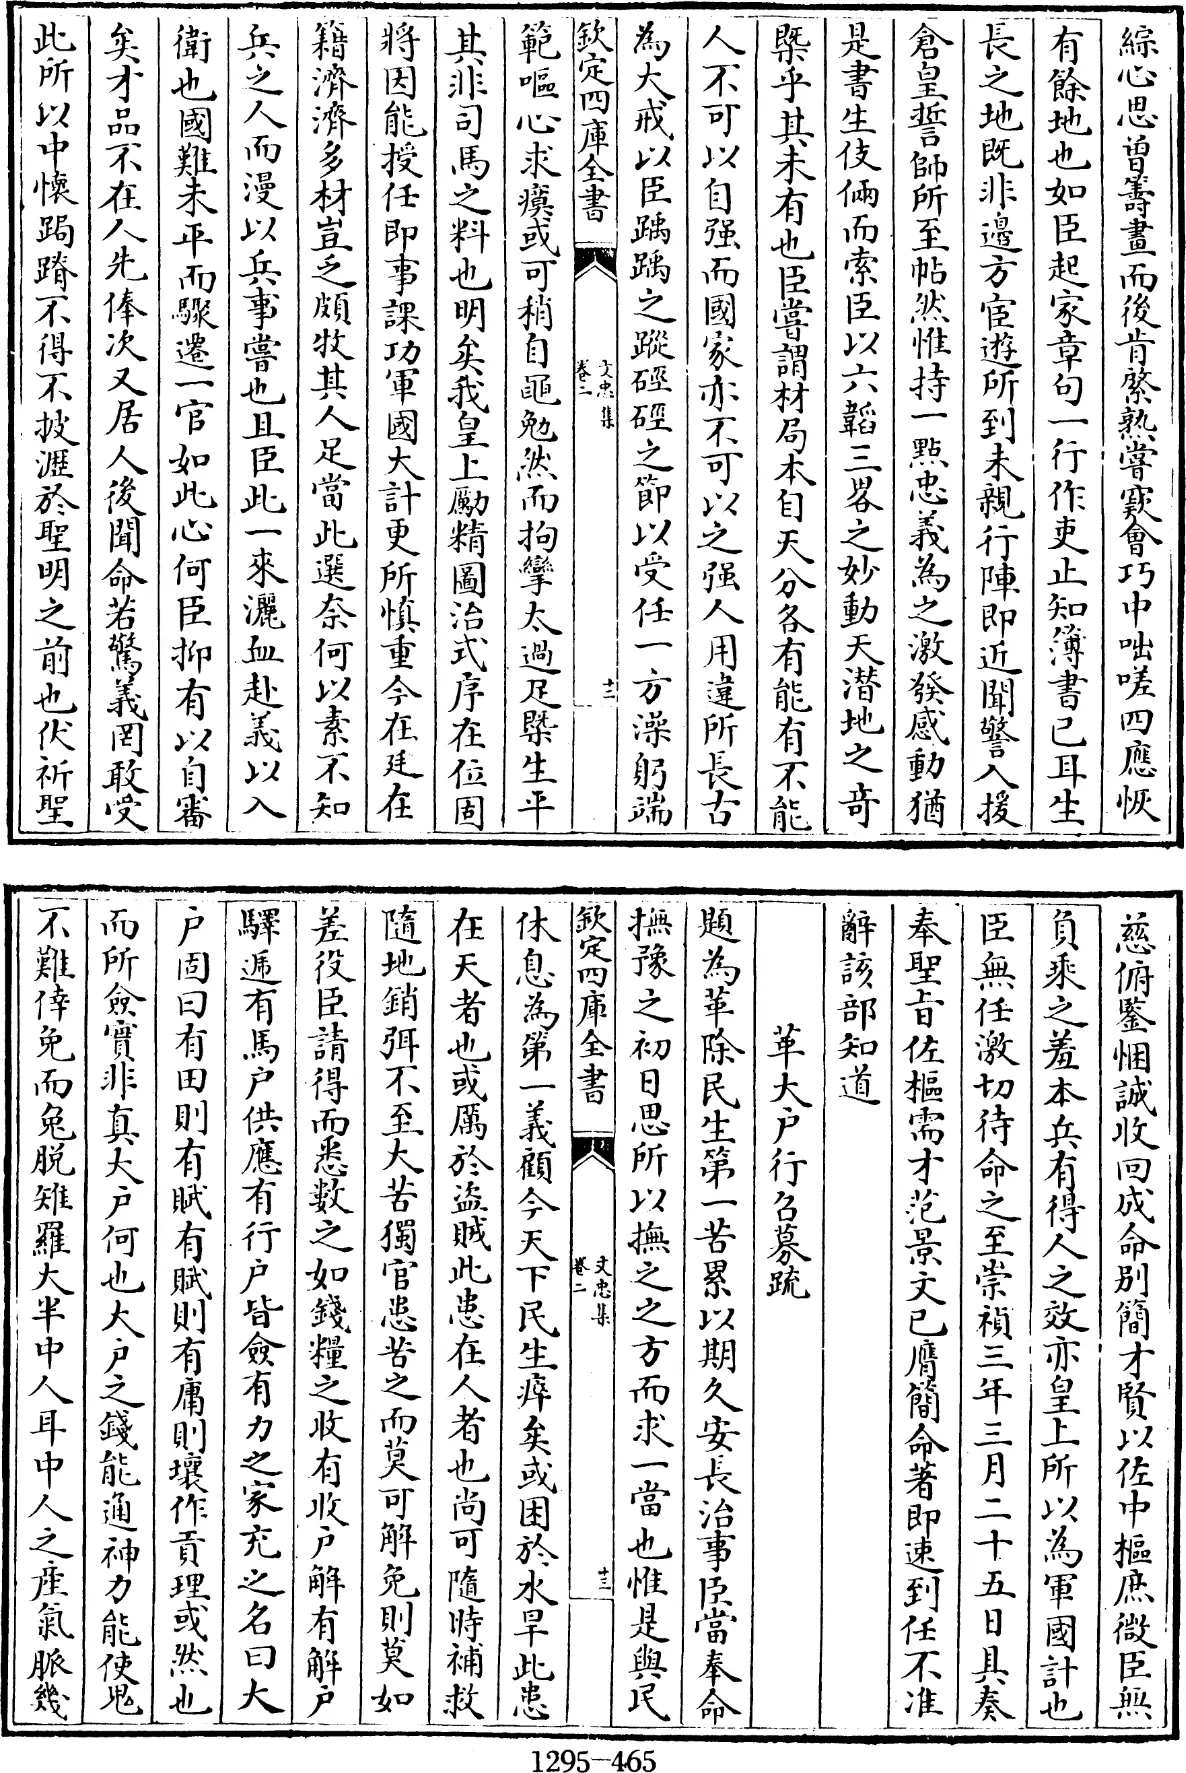 綜心思曾籌畫而後肯綮熟嘗竅會巧中咄嗟四應恢
有餘地也如臣起家章句一行作吏止知簿書已耳生
長之地既非邊方宦遊所到未親行陣即近聞警入援
倉皇誓師所至帖然惟持一點忠義為之激發感動猶
是書生伎倆而索臣以六韜三畧之妙動天潛地之奇
槩乎其未有也臣嘗謂材局本自天分各有能有不能
人不可以自强而國家亦不可以之强人用違所長古
為大戒以臣踽踽之蹤硜硜之節以受任一方澡躬端
欽定四庫全書
文忠集
卷二
十二
範嘔心求瘼或可稍自黽勉然而拘攣太過足槩生平
其非司馬之料也明矣我皇上勵精圖治式序在位固
將因能授任即事課功軍國大計更所慎重今在廷在
籍濟濟多材豈乏頗牧其人足當此選奈何以素不知
兵之人而漫以兵事嘗也且臣此一來灑血赴義以入
衛也國難未平而驟遷一官如此心何臣抑有以自審
矣才品不在人先俸次又居人後聞命若驚義罔敢受
此所以中懷跼蹐不得不披瀝於聖明之前也伏祈聖
慈俯鑒悃誠收回成命别簡才賢以佐中樞庶微臣無
負乘之羞本兵有得人之效亦皇上所以為軍國計也
臣無任激切待命之至崇禎三年三月二十五日具奏
奉聖旨佐樞需才范景文已膺簡命著即速到任不准
辭該部知道
革大户行召募疏
題為革除民生第一苦累以期久安長治事臣當奉命
撫豫之初日思所以撫之之方而求一當也惟是與民
欽定四庫全書
文忠集
卷二
十三
休息為第一義顧今天下民生瘁矣或困於水旱此患
在天者也或厲於盜賊此患在人者也尚可隨時補救
隨地銷弭不至大苦獨官患苦之而莫可解免則莫如
差役臣請得而悉數之如錢糧之收有收户解有解户
驛遞有馬户供應有行户皆僉有力之家充之名曰大
户固曰有田則有賦有賦則有庸則壤作貢理或然也
而所僉實非真大户何也大户之錢能通神力能使鬼
不難倖免而兔脱雉羅大半中人耳中人之産氣脈幾
1295-465